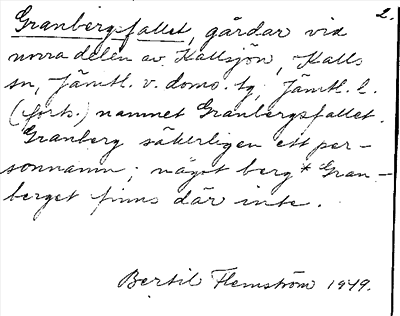 2.
Granbergsfallet, gårdar vid
norra delen av Kallsjön, Kalls
sn, Jämtl. v. doms. tg, Jämtl. l.
(forts.) namnet Granbergsfallet.
Granberg säkerligen ett per-
sonnamn; något berg *Gran-
berget finns där inte.
Bertil Flemström 1949.